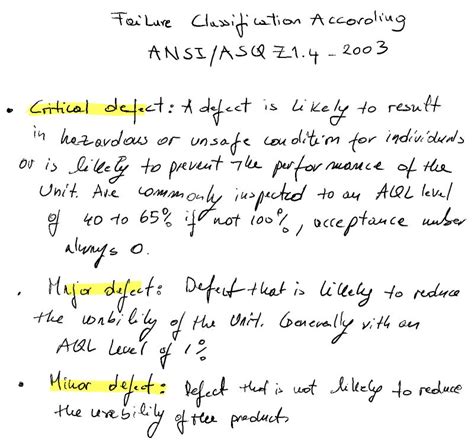 Failure Classification According
ANSI/ASQ Z1.4 - 2003
• Critical defect: A defect is likely to result
in hazardous or unsafe condition for individuals
or is likely to prevent the performance of the
Unit. Are commonly inspected to an AQL level
of 40 to 65% if not 100%, acceptance number
always 0.
• Major defect: Defect that is likely to reduce
the usability of the Unit. Generally with an
AQL Level of 1%
• Minor defect: Defect that is not likely to reduce
the usability of the product